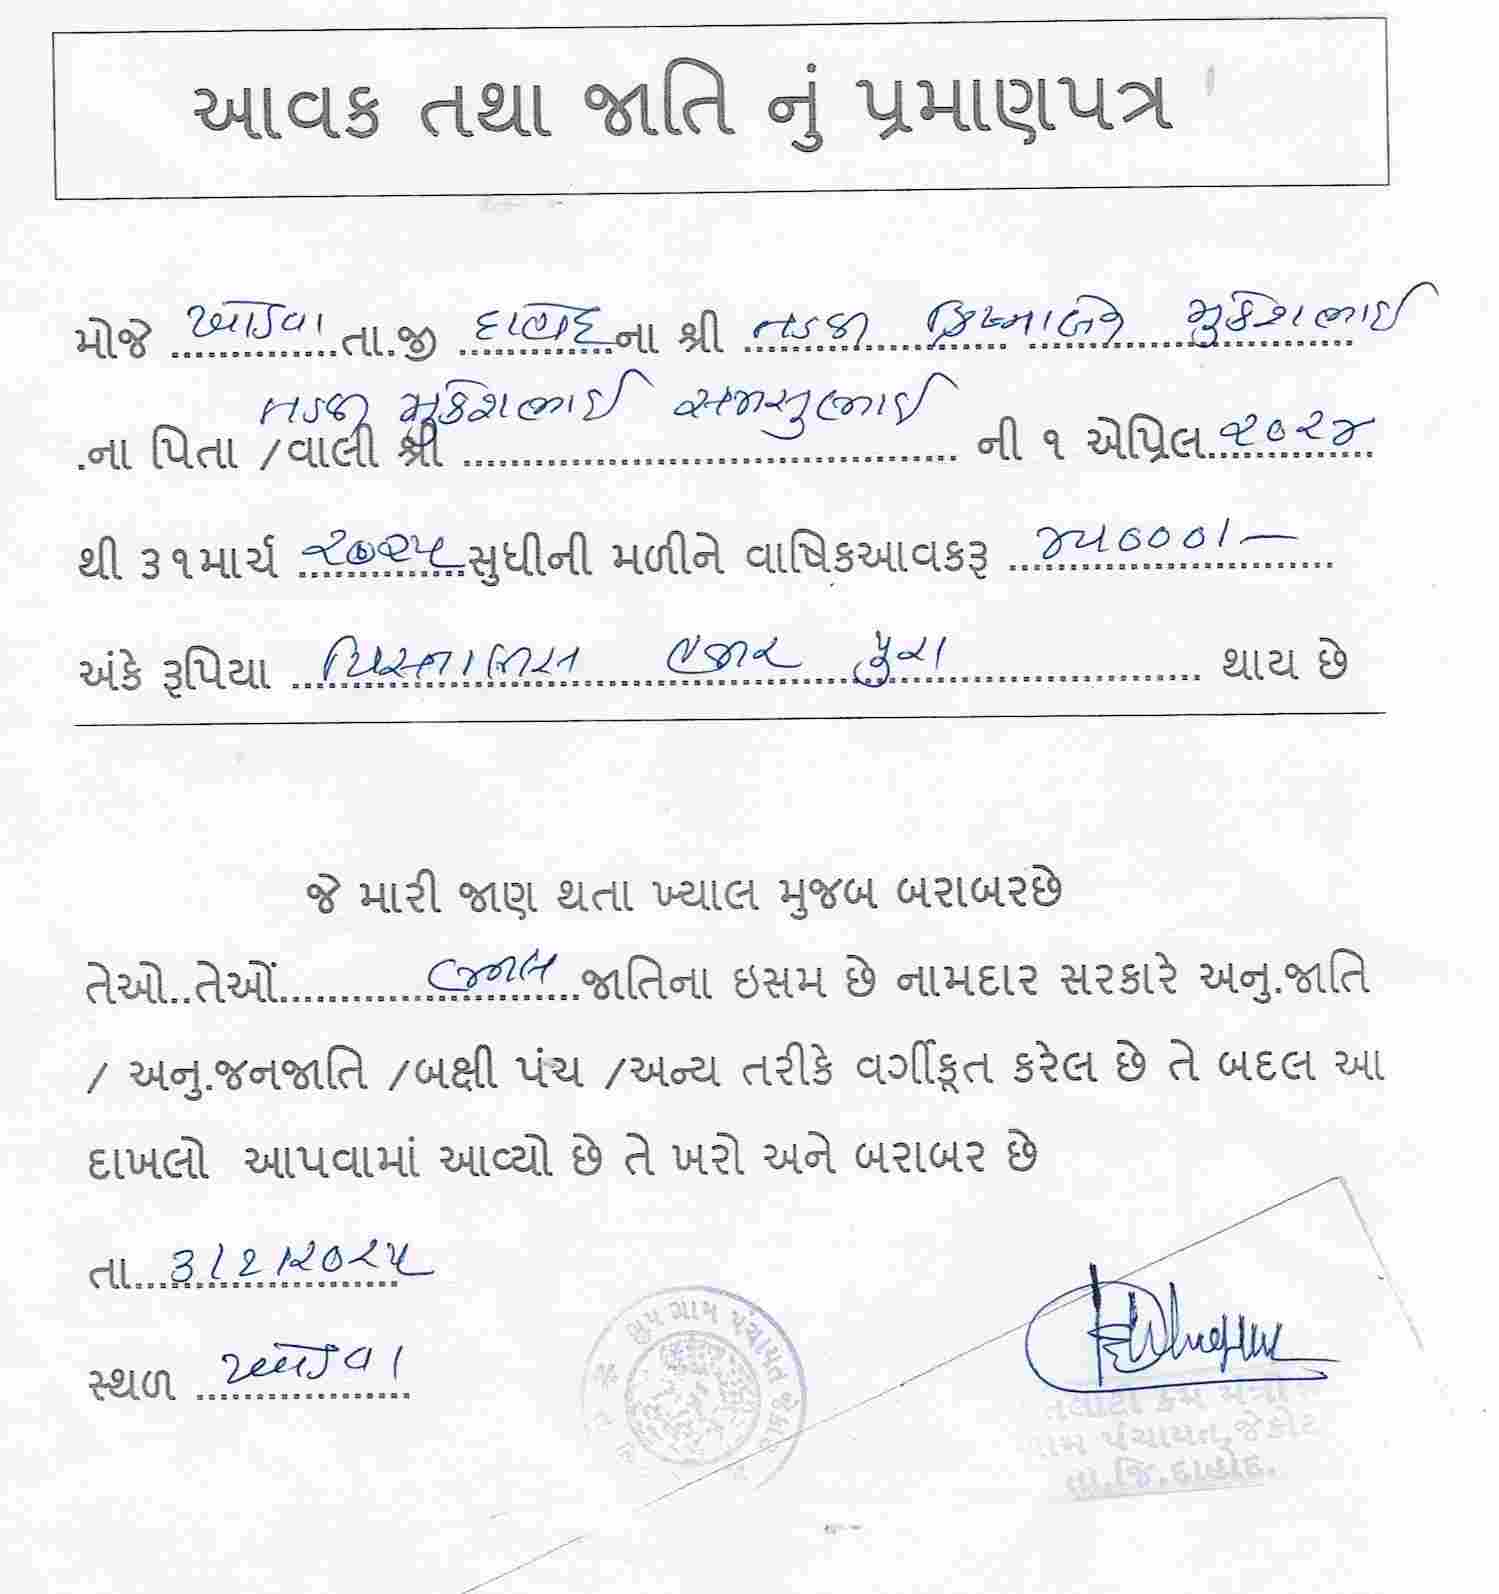 આવક તથા જાતિ નું પ્રમાણપત્ર
મોજે ખોડવા તા.જી દાહોદ ના શ્રી તડવી મુકેશભાઇ
તડવી મુકેશભાઇ
.ના પિતા /વાલી શ્રી ........ ની ૧ એપ્રિલ ૨૦૨૪
થી ૩૧માર્ચ ૨૦૨૫ સુધીની મળીને વાષિકઆવકરૂ ૪૫૦૦૦/-
અંકે રૂપિયા પિસ્તાલીસ હજાર પુરા થાય છે
જે મારી જાણ થતા ખ્યાલ મુજબ બરાબરછે
તેઓ..તેઓં........જાતિના ઇસમ છે નામદાર સરકારે અનુ.જાતિ
/ અનુ.જનજાતિ /બક્ષી પંચ /અન્ય તરીકે વર્ગીકૃત કરેલ છે તે બદલ આ
દાખલો આપવામાં આવ્યો છે તે ખરો અને બરાબર છે
તા... ૩/૨/૨૦૨૫
સ્થળ
ગ્રામ પંચાયત જેકોટ
તલાટી કમ મંત્રી
ગ્રામ પંચાયત,જેકોટ
તા.જિ.દાહોદ.